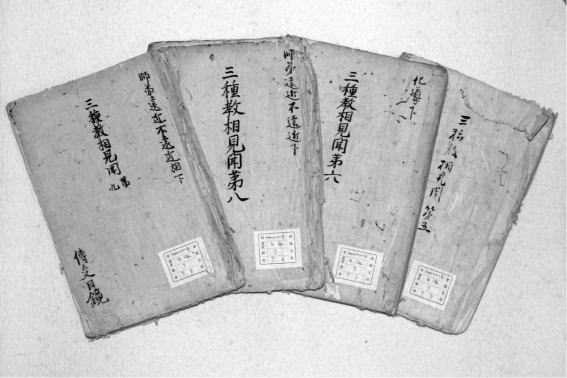 三種教相見聞第九
師弟遠近不遠近相下
傳受日鏡
三種教相見聞第八
師弟遠近不遠近下
三種教相見聞第六
化導下
三種教相見聞第五